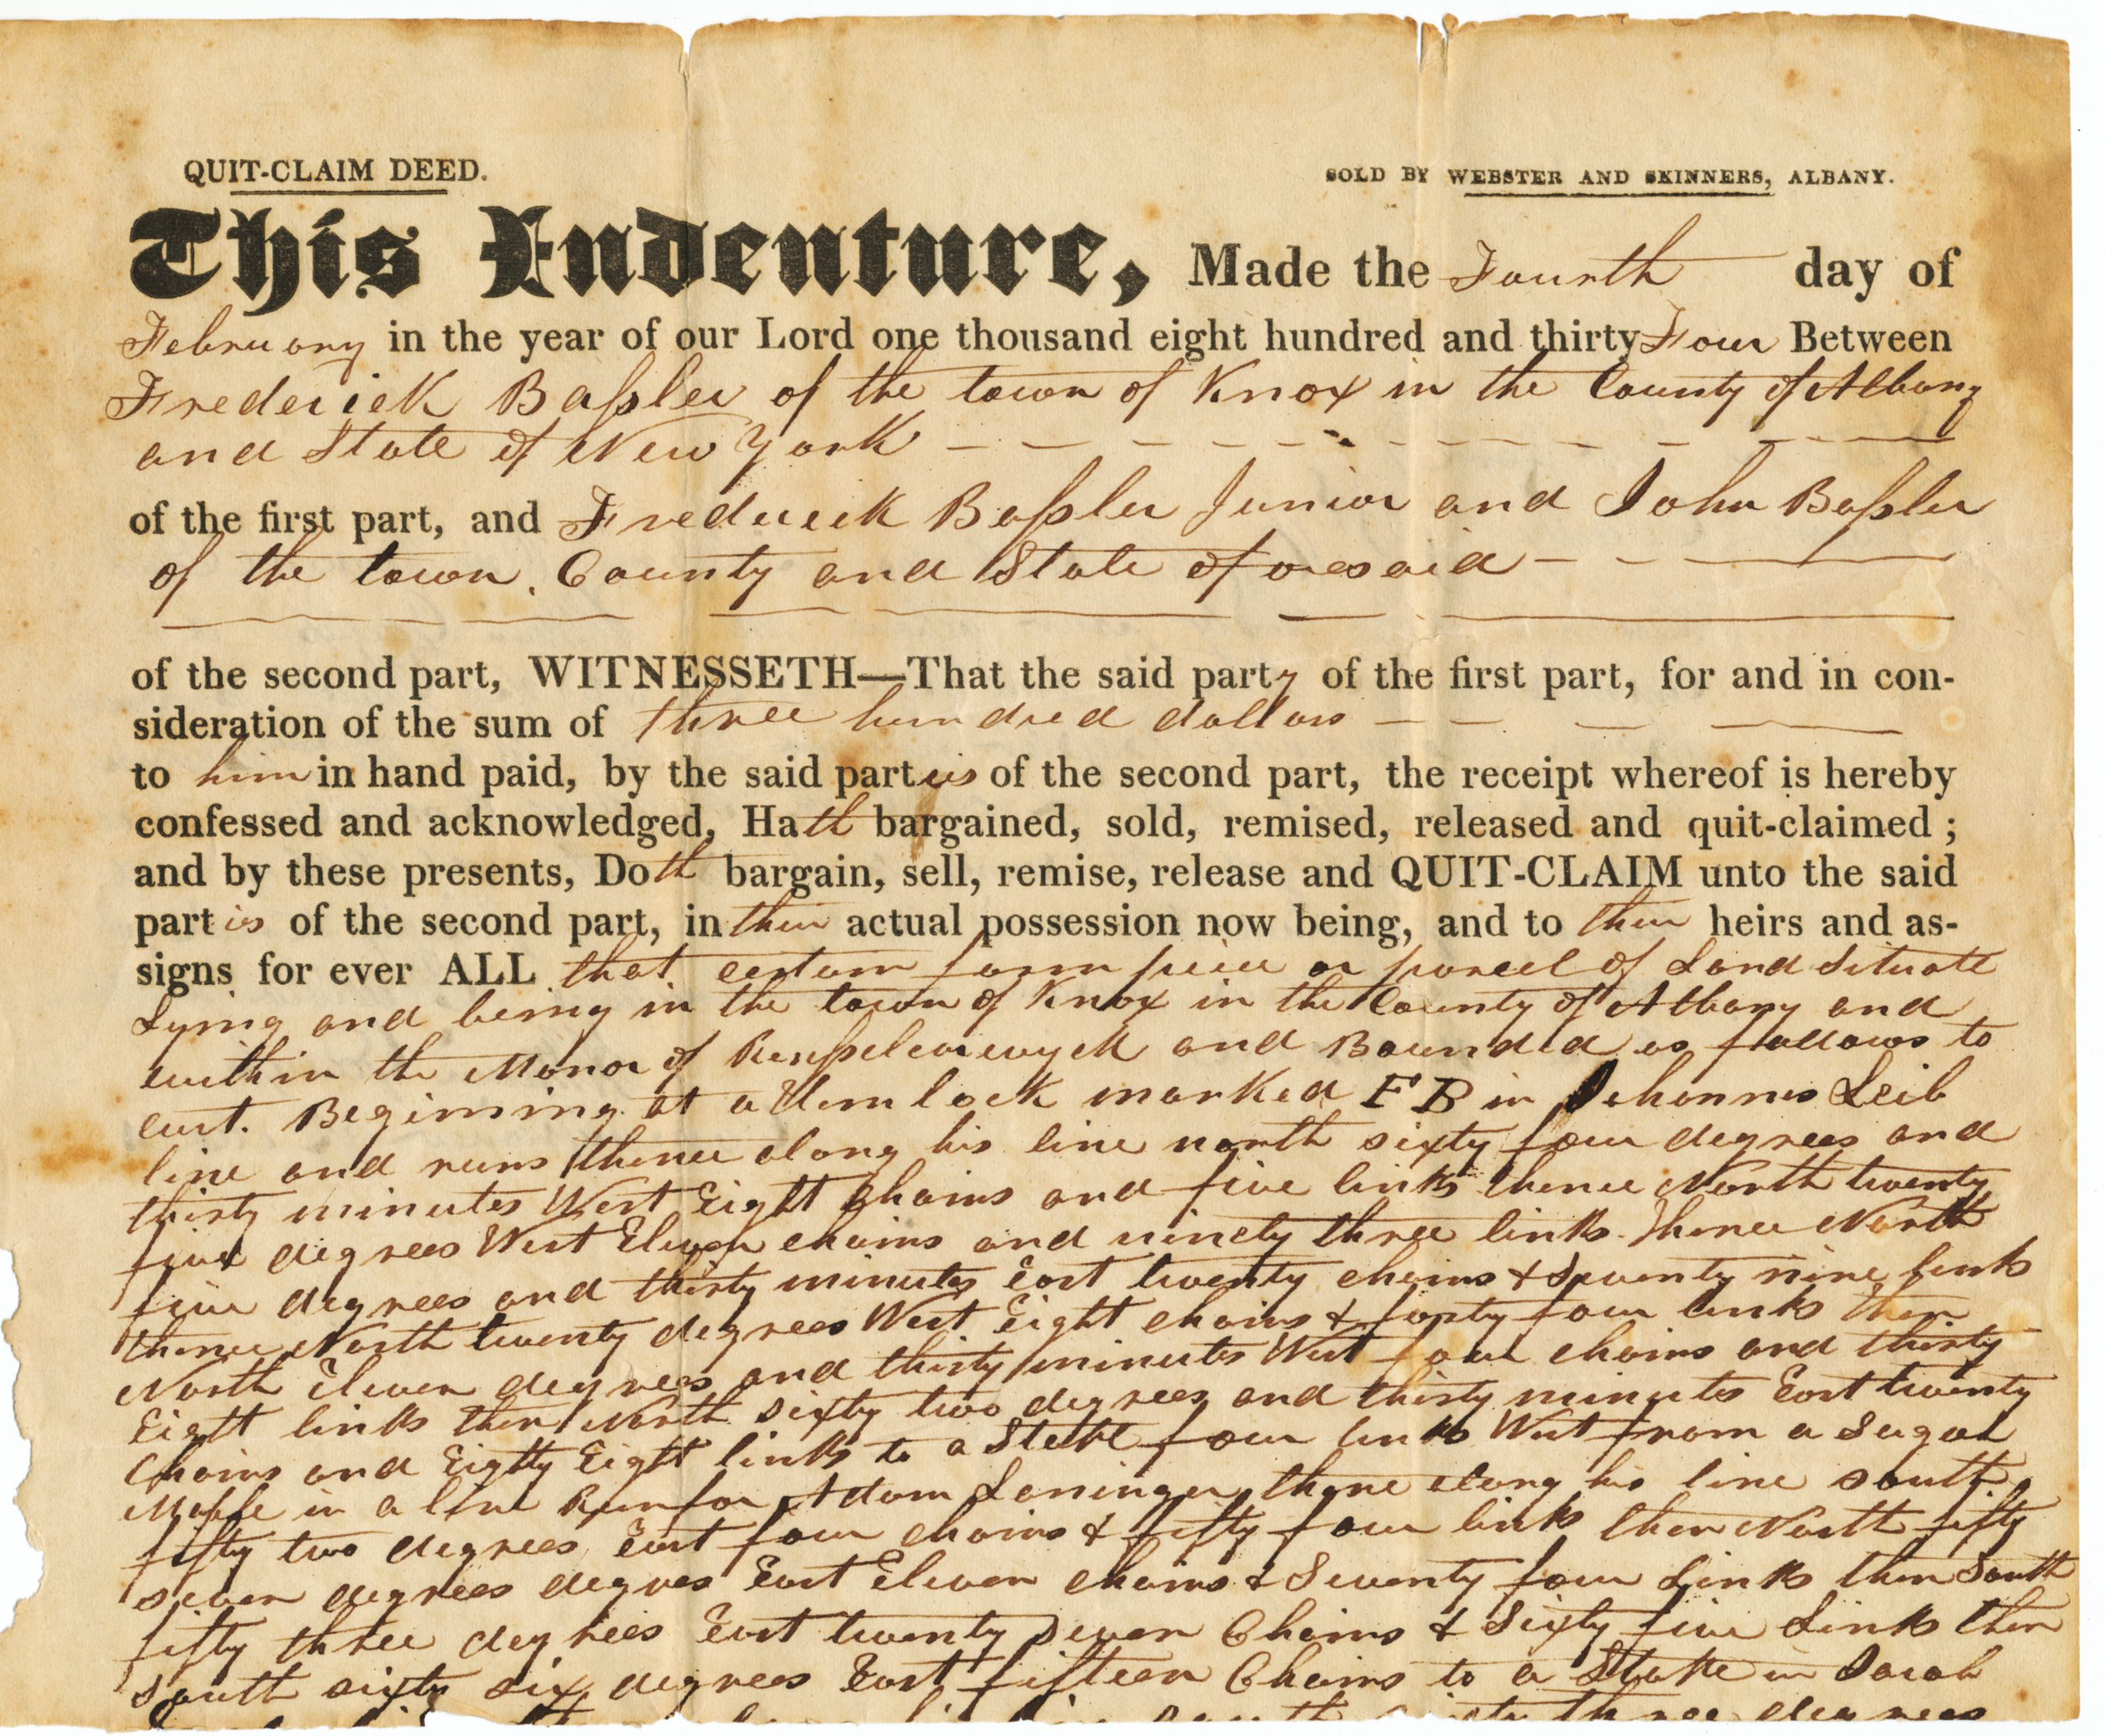 QUIT-CLAIM DEED.
SOLD BY WEBSTER AND SKINNERS, ALBANY.
This Indenture, Made the Fourth day of
February in the year of our Lord one thousand eight hundred and thirty Four Between
Frederick Baſsler of the town of Knox in the County of Albany
and State of New York
of the first part, and Frederick Baſsler Junior and John Baſsler
of the town, County and State aforesaid
of the second part, WITNESSETH—That the said party of the first part, for and in con-
sideration of the sum of three hundred dollars
to him in hand paid, by the said parties of the second part, the receipt whereof is hereby
confessed and acknowledged, Hath bargained, sold, remised, released and quit-claimed ;
and by these presents, Doth bargain, sell, remise, release and QUIT-CLAIM unto the said
parties of the second part, in their actual possession now being, and to their heirs and as-
signs for ever ALL that certain farm piece or parcel of Land Situate
Lying and being in the town of Knox in the County of Albany and
within the Manor of and Bounded as follows to
wit. Begining at a Hemlock marked F B in Johannes Leib
line and runs thence along his line north sixty four degrees and
thirty minutes West Eight chains and five links thence North twenty
five degrees West Eleven chains and ninety three links. thence North
five degrees and thirty minutes East twenty chains & Seventy nine links
thence North twenty degrees West Eight chains & forty four links then
North Eleven degrees and thirty minutes West four chains and thirty
Eight links then North sixty two degrees and thirty minutes East twenty
Chains and Eighty Eight links to a Stake four links West from a Sugar
Maple in a line Run for Adam Laninger thence along his line south
fifty two degrees East four chains & fifty four links then North fifty
seven degrees degrees East Eleven chains & Seventy four Links then South
fifty three degrees East twenty seven Chains & Sixty five Links then
south sixty six degrees East fifteen Chains to a Stake in Sarah
three degrees